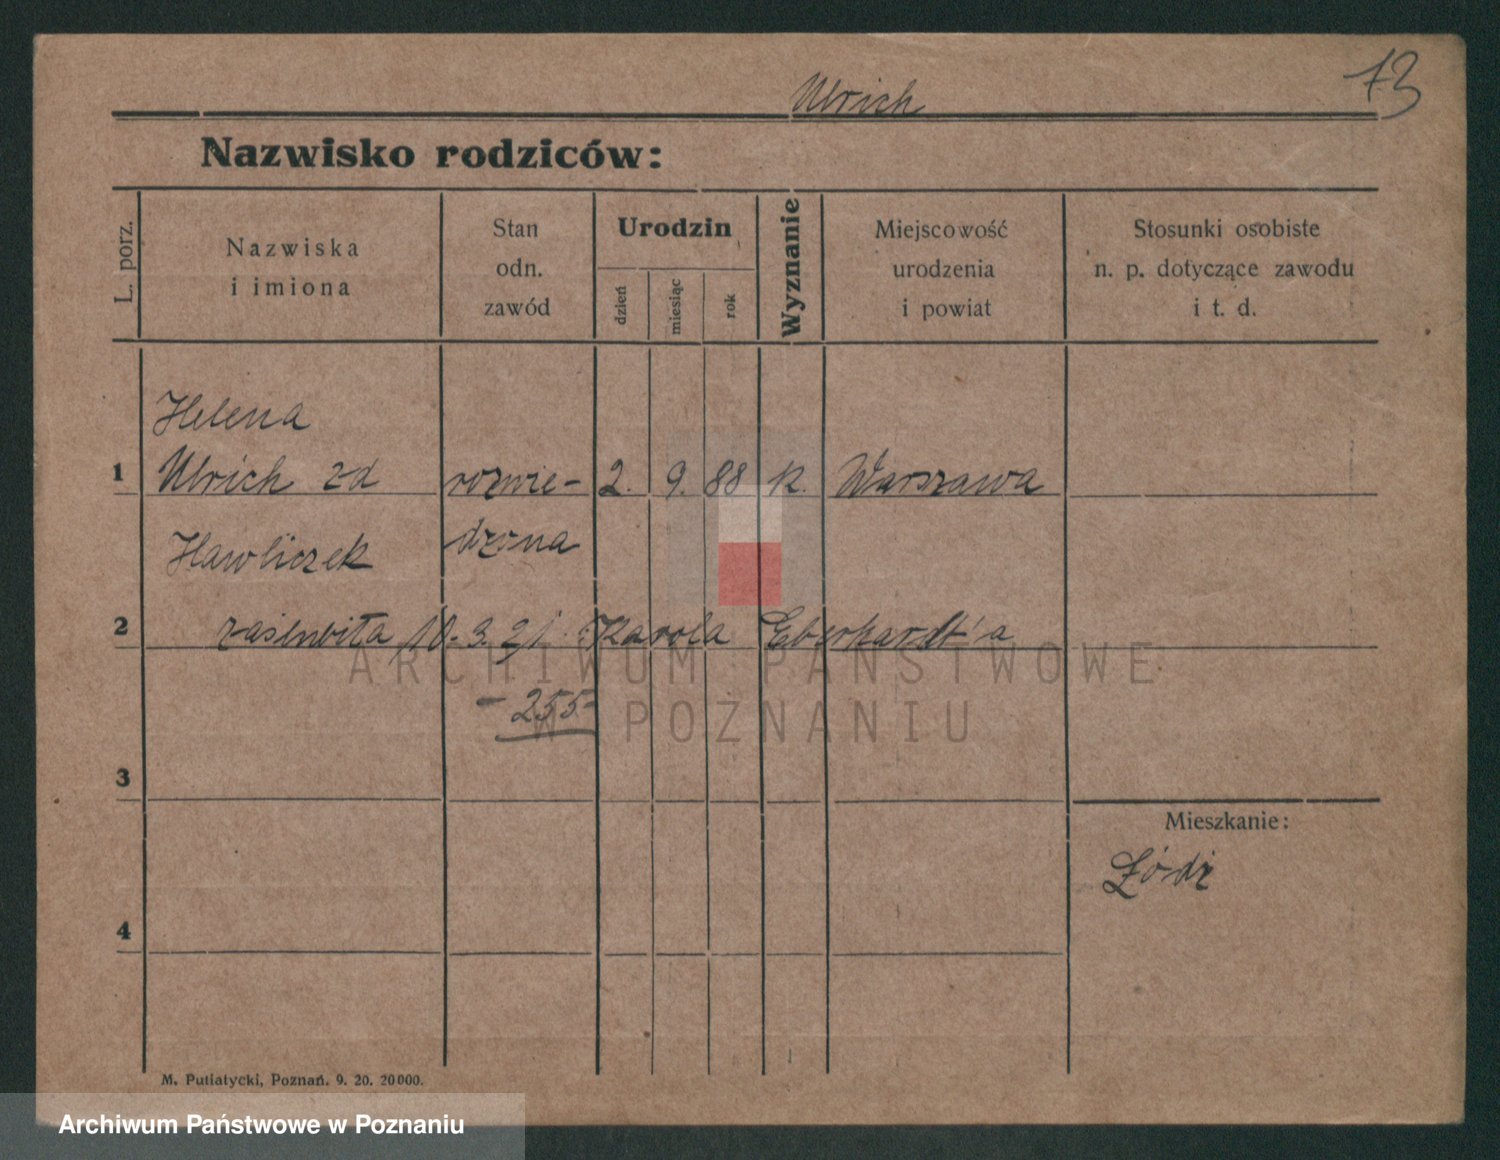 Ulrich
73
Nazwisko rodziców:
L. porz.
Nazwiska
i imiona
Stan
odn.
zawód
Urodzin
dzień
miesiąc
rok
Wyznanie
Miejscowość
urodzenia
i powiat
Stosunki osobiste
n. p. dotyczące zawodu
i t. d.
Helena
1 Ulrich zd rozwie- 2. 9. 88 k. Warszawa
Hawliczek dzona
2 zaślubiła 10. 3. 21 Karola Eberhardt'a
- 255-
3
Mieszkanie:
Łódź
4
M. Putiatycki, Poznań. 9. 20. 20000.
ARCHIWUM PAŃSTWOWE
W POZNANIU
Archiwum Państwowe w Poznaniu